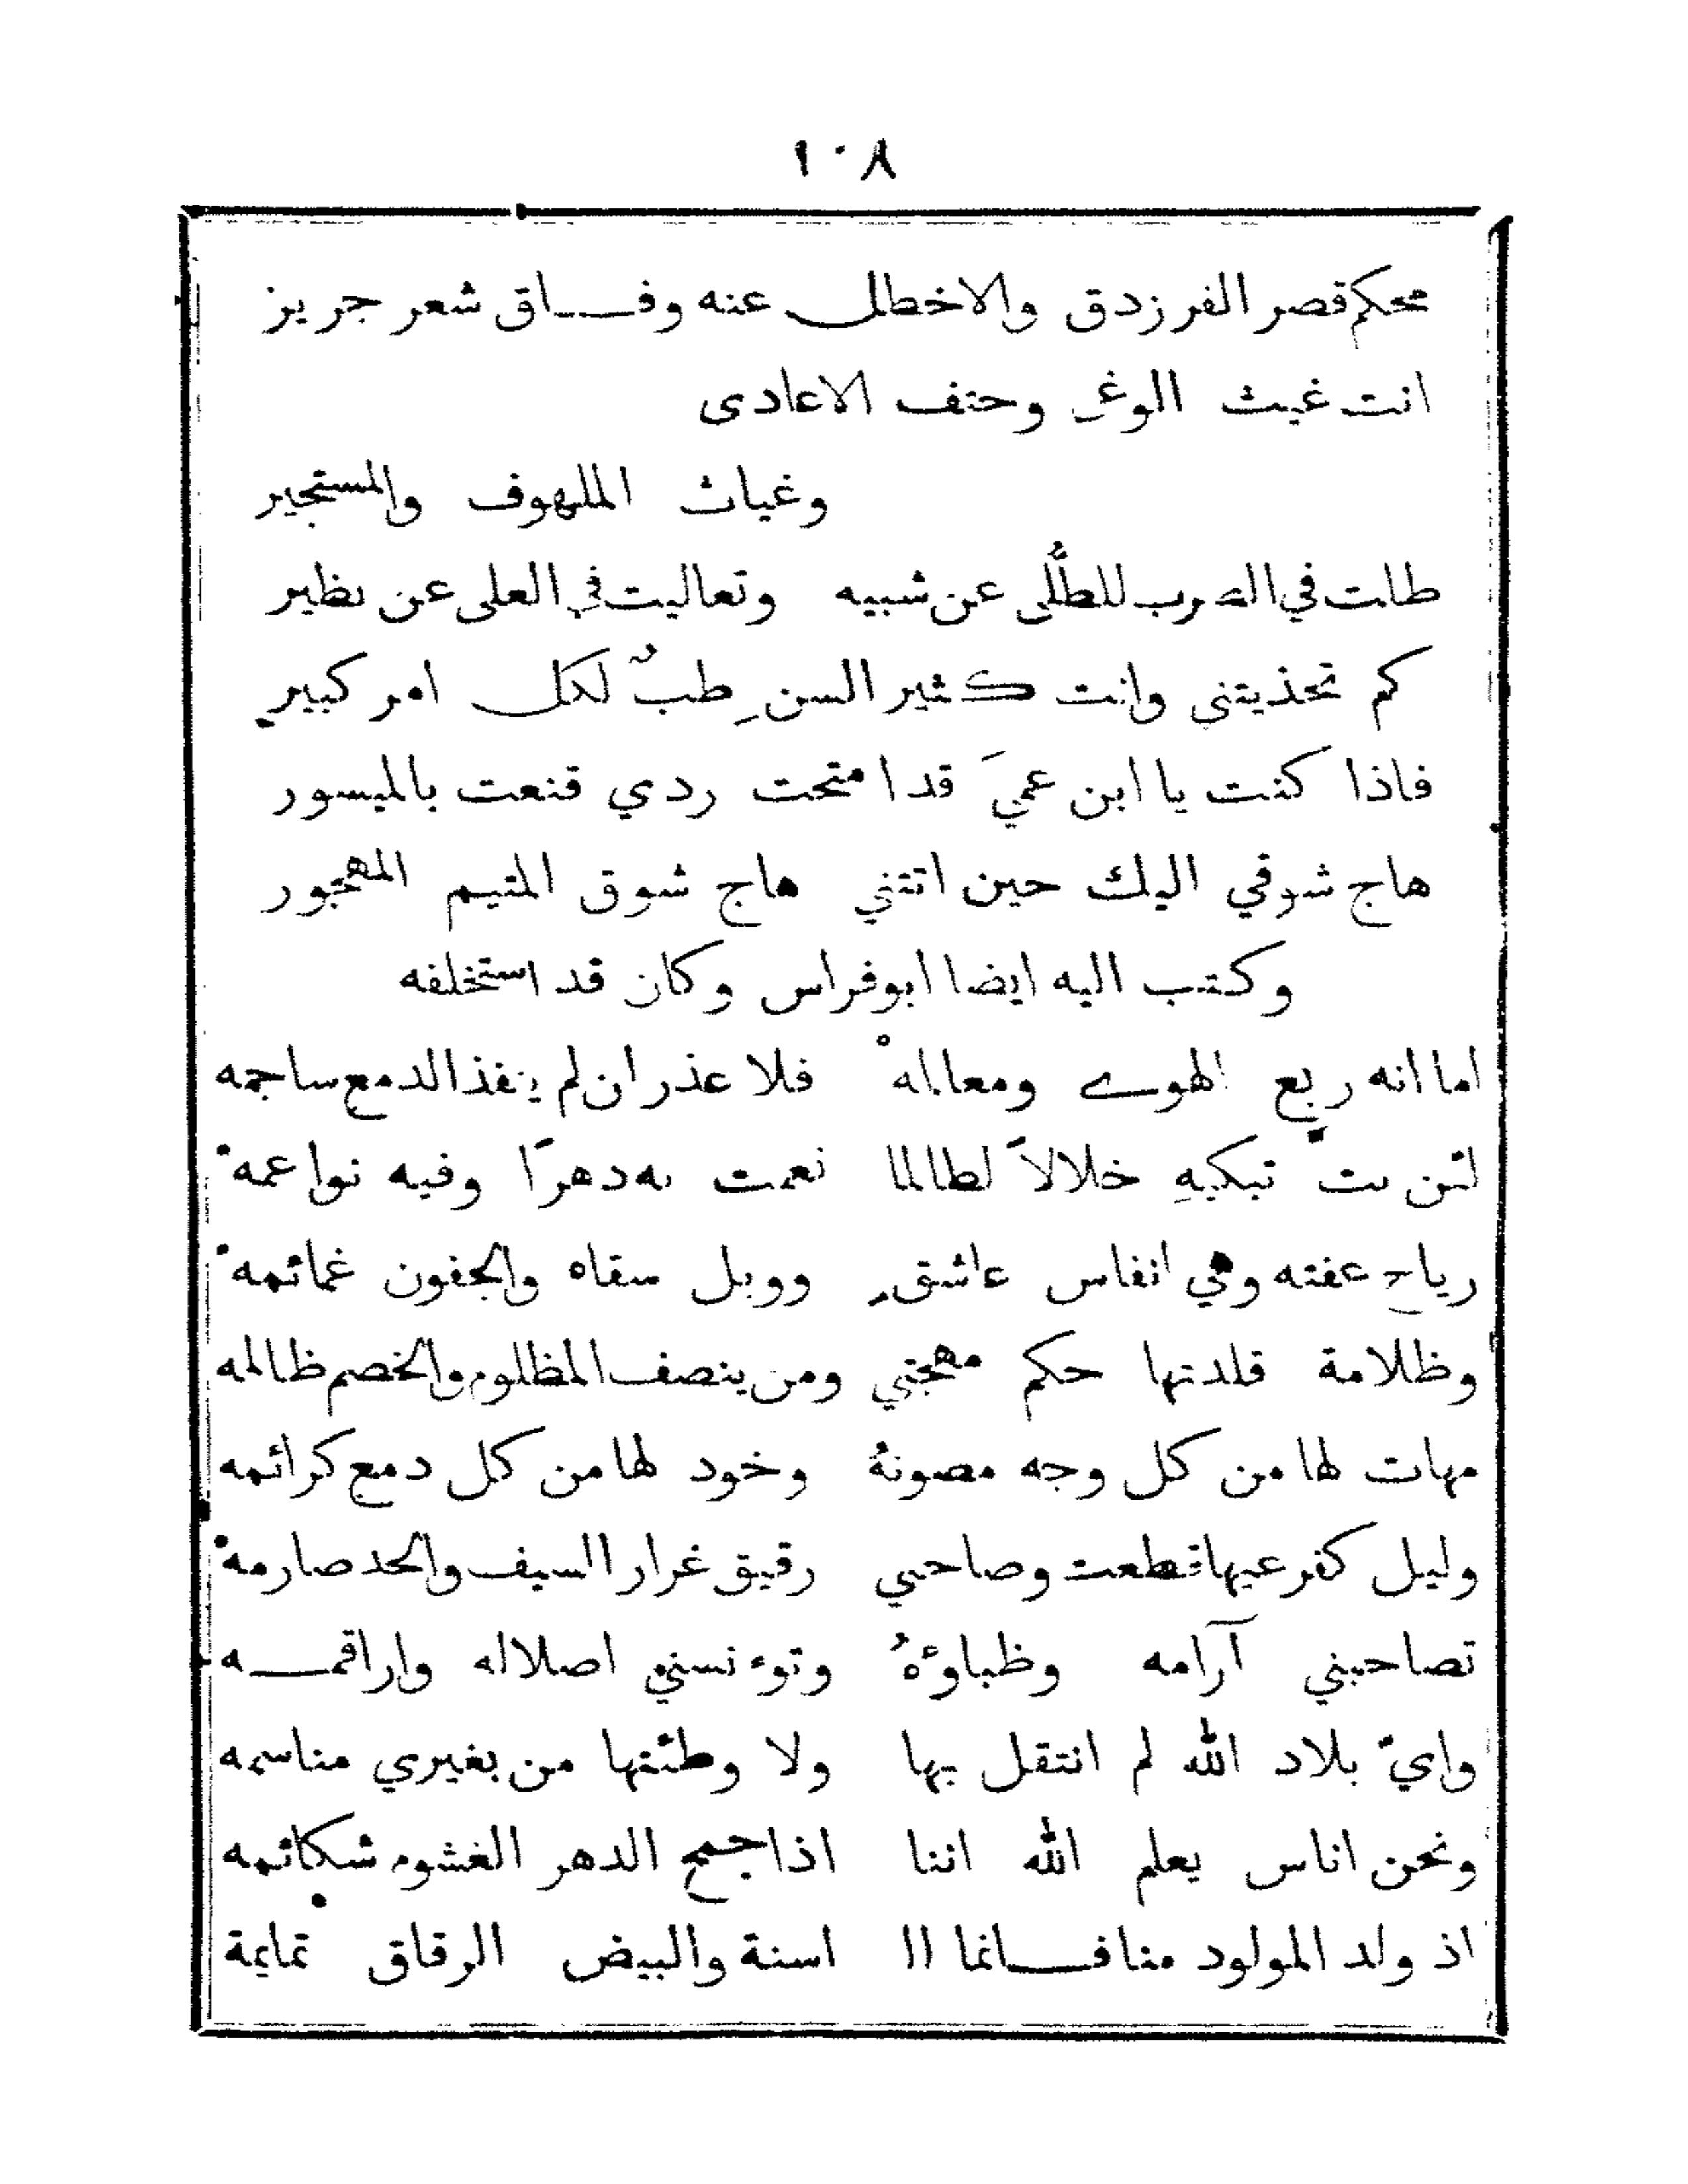 ١٠٨
محكم قصر الفرزدق والاخطل عنه وفاق شعر جريز
انت غيث الوغى وحتف الاعادى
وغياث الملهوف والمستجير
طلت في الضرب للطُّلى عن شبيه وتعاليت في العلى عن نظير
كم تحذيتني وانت كثير السن طبٌ لكل امر كبيرِ
فاذا كنت يا ابن عميَ قد امتحت ردي قنعت بالميسور
هاج شوقي اليك حين اتتني هاج شوق المتيم المهجور
وكتب اليه ايضا ابو فراس وكان قد استخلفه
اما انه ربع الهوى ومعالمهْ فلا عذر ان لم ينفذ الدمع ساجمه
لئن بتَّ تبكيهِ خلالاً لطالما نعمت به دهرًا وفيه نواعمه
رياح عفته وهي انفاس عاشقٍ ووبل سقاه والجفون غمائمه
وظلامة قلدتها حكم مهجتي ومن ينصف المظلوم والخصم ظالمه
مهات لها من كل وجه مصونهُ وخود لها من كل دمع كرائمه
وليل كفرعيها قطعت وصاحبي رقيق غرار السيف والحد صارمه
تصاحبني آرامه وظباؤهُ وتوءنسني اصلاله واراقمه
وايّ بلاد الله لم انتقل بها ولا وطئتها من بغيري مناسمه
ونحن اناس يعلم الله اننا اذا جمح الدهر الغشوم شكائمه
اذ ولد المولود منا فانما ال اسنة والبيض الرقاق تمايمة